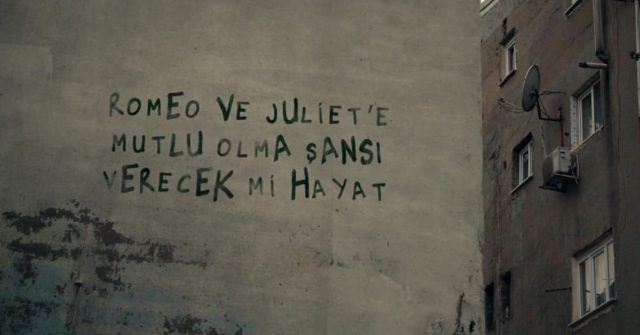 ROMEO VE JULİET'E
MUTLU OLMA ŞANSI
VERECEK Mİ HAYAT